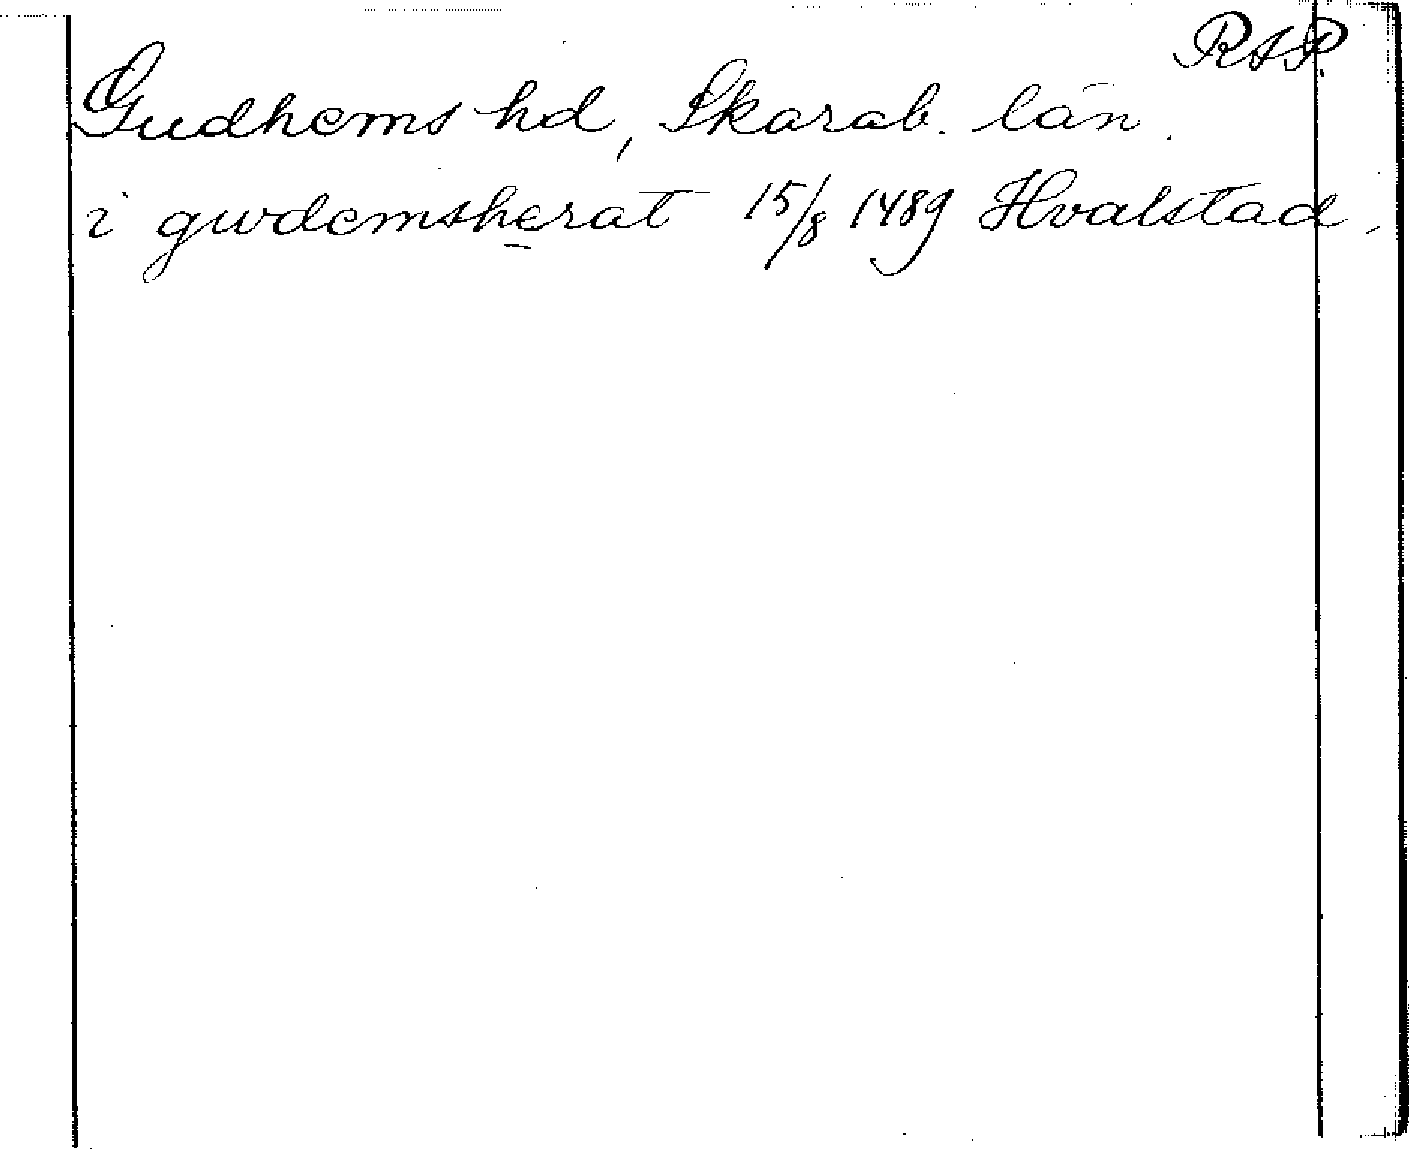 RAP.
Gudhems hd, Skarab. län.
i gwdemsherat 15/8 1489 Hvalstad,